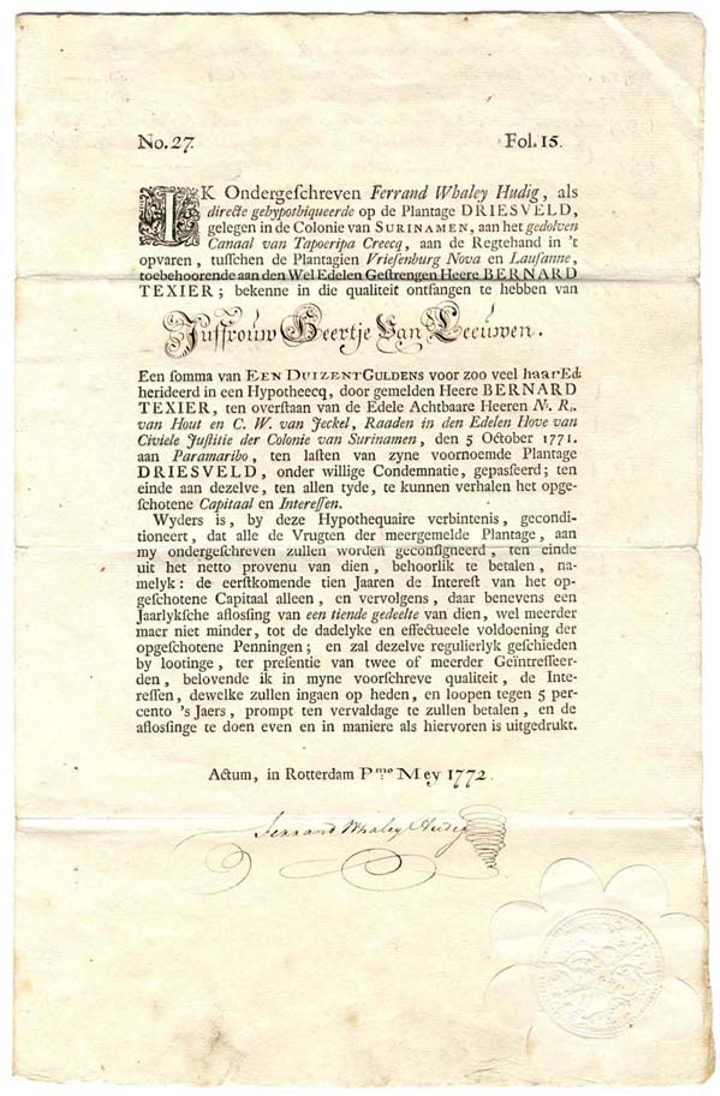 No. 27. Fol. 15.
IK Ondergeſchreven Ferrand Whaley Hudig, als
directe gehypothiqueerde op de Plantage DRIESVELD,
gelegen in de Colonie van SURINAMEN, aan het gedolven
Canaal van Tapoeripa Creecq, aan de Regtehand in 't
opvaren, tuſſchen de Plantagien Vrieſenburg Nova en Lauſanne,
toebehoorende aan den Wel Edelen Geſtrengen Heere BERNARD
TEXIER; bekenne in die qualiteit ontfangen te hebben van
Juffrouw Geertje Van Leeuwen.
Een ſomma van EEN DUIZENT GULDENS voor zoo veel haar Ed:
herideerd in een Hypotheecq, door gemelden Heere BERNARD
TEXIER, ten overſtaan van de Edele Achtbaare Heeren Nr. R.
van Hout en C. W. van Jeckel, Raaden in den Edelen Hove van
Civiele Juſtitie der Colonie van Surinamen, den 5 October 1771.
aan Paramaribo, ten laſten van zyne voornoemde Plantage
DRIESVELD, onder willige Condemnatie, gepaſſeerd; ten
einde aan dezelve, ten allen tyde, te kunnen verhalen het opge-
ſchotene Capitaal en Intereſſen.
Wyders is, by deze Hypothequaire verbintenis, gecondi-
tioneert, dat alle de Vrugten der meergemelde Plantage, aan
my ondergeſchreven zullen worden geconſigneerd, ten einde
uit het netto provenu van dien, behoorlik te betalen, na-
melyk: de eerſtkomende tien Jaaren de Intereſt van het op-
geſchotene Capitaal alleen, en vervolgens, daar benevens een
Jaarlykſche afloſſing van een tiende gedeelte van dien, wel meerder
maer niet minder, tot de dadelyke en effectueele voldoening der
opgeſchotene Penningen; en zal dezelve regulierlyk geſchieden
by lootinge, ter preſentie van twee of meerder Geïntreſſeer-
den, belovende ik in myne voorſchreve qualiteit, de Inte-
reſſen, dewelke zullen ingaen op heden, en loopen tegen 5 per-
cento 's Jaers, prompt ten vervaldage te zullen betalen, en de
afloſſinge te doen even en in maniere als hiervoren is uitgedrukt.
Actum, in Rotterdam Pmo Mey 1772.
Ferrand Whaley Hudig